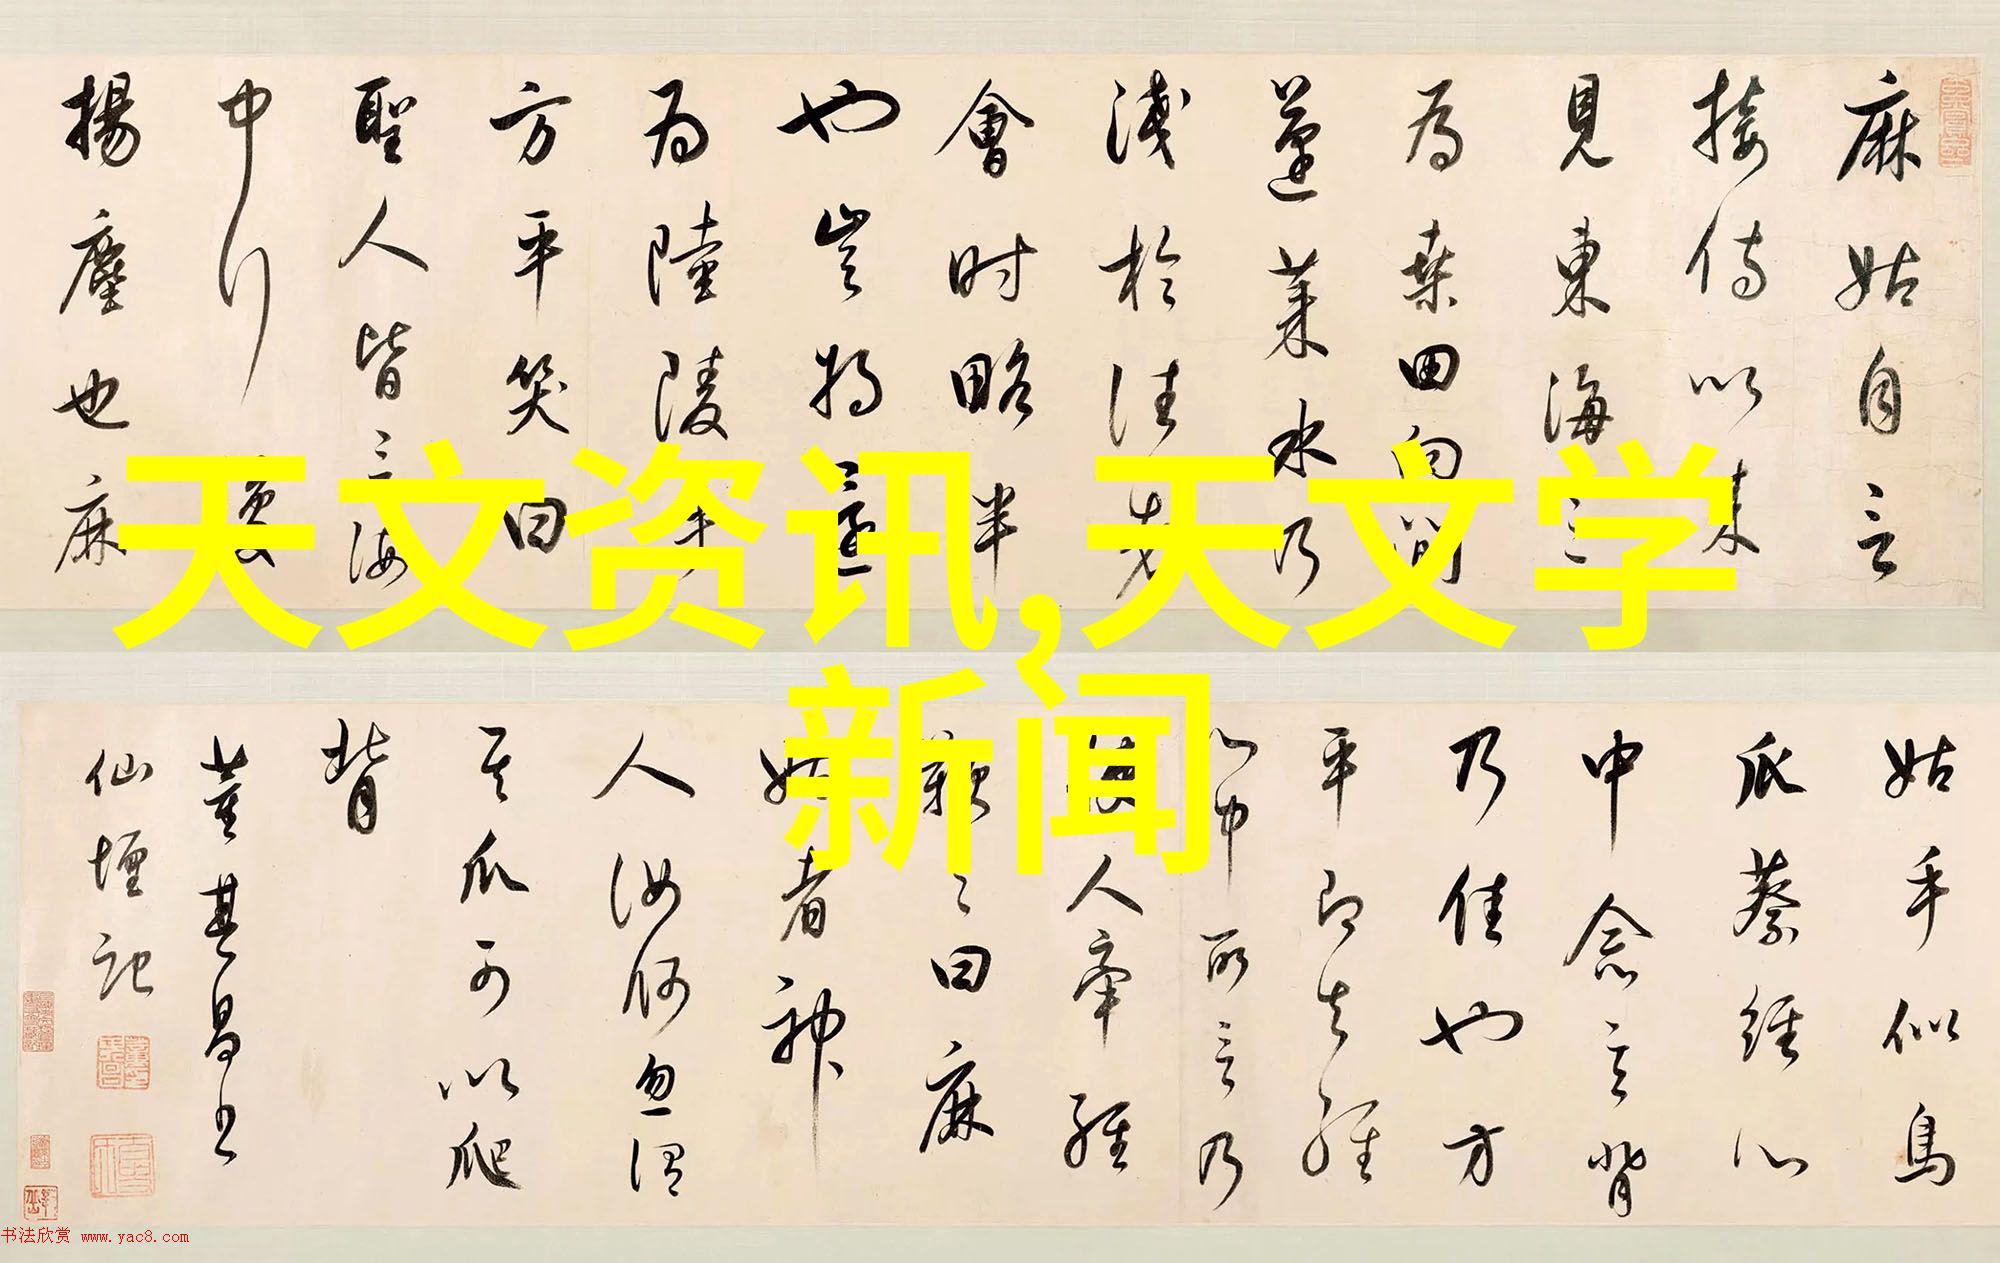 麻姑自言
接侍以来
見東海三
為桑田向間
蓬莱水乃
淺於往者
會时略半
也豈將還
為陸陵乎
方平笑曰
聖人皆言海
中行復
揚塵也麻
姑手似鳥
爪蔡經心
中念言背
乃佳也方
平即知經
心中所言乃
使人牽經
鞭之曰麻
姑者神
人汝何忽謂
其爪可以爬
背
董其昌書
仙壇記
天文资讯,天文学
新闻
书法欣赏 www.yac8.com